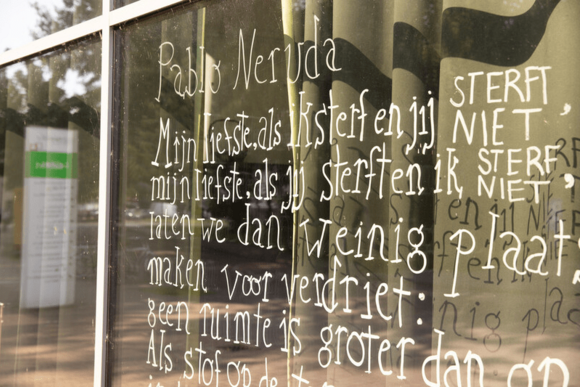 Pablo Neruda
Mijn liefste, als ik sterf en jij STERFT NIET,
mijn liefste, als jij sterft en ik STERF NIET,
laten we dan weinig plaats
maken voor verdriet:
geen ruimte is groter dan op
Als stof op de